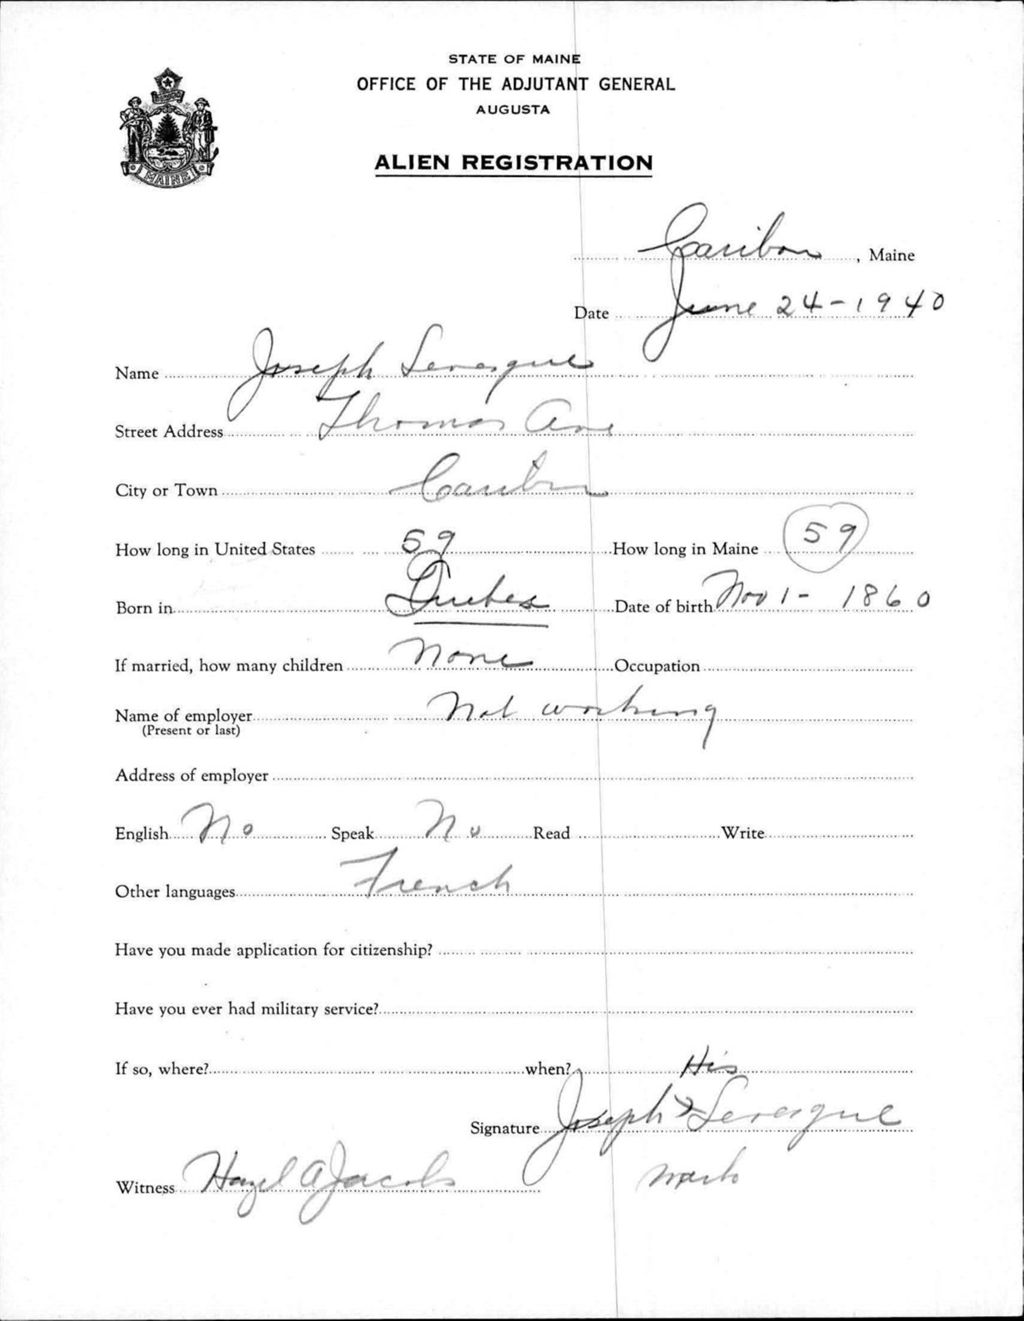 STATE OF MAINE
OFFICE OF THE ADJUTANT GENERAL
AUGUSTA
ALIEN REGISTRATION
MAINE
Caribou, Maine
Date June 24-1940
Name Joseph Levesque
Street Address Thomas Ave
City or Town Caribou
How long in United States 59 How long in Maine 59
Born in Quebec Date of birth Nov 1-1860
If married, how many children None Occupation
Name of employer Not working
(Present or last)
Address of employer
English No Speak No Read Write
Other languages French
Have you made application for citizenship?
Have you ever had military service?
If so, where? when? His
Signature Joseph x Levesque
Witness Hazel A Jacobs mark